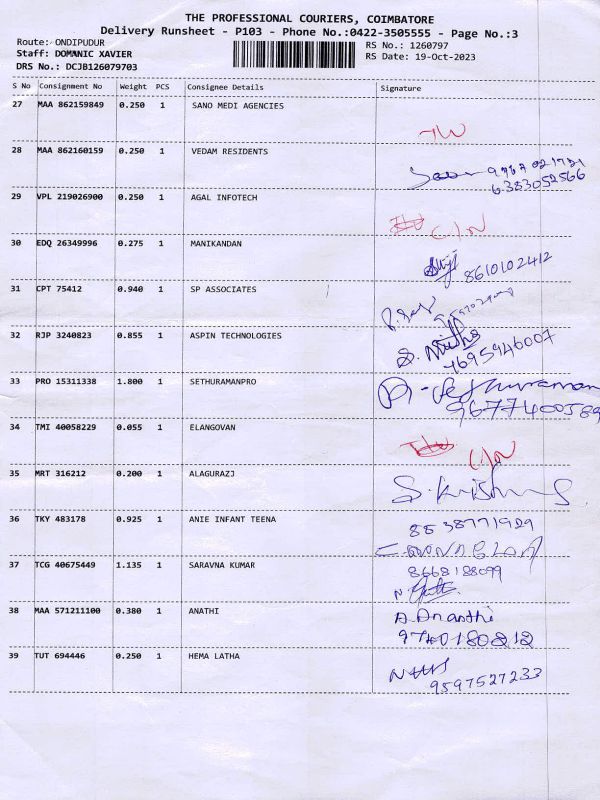 THE PROFESSIONAL COURIERS, COIMBATORE
Delivery Runsheet - P103 - Phone No.:0422-3505555 - Page No.:3
Route: ONDIPUDUR
RS No.: 1260797
Staff: DOMANIC XAVIER
RS Date: 19-Oct-2023
DRS No.: DCJB126079703
S No Consignment No Weight PCS Consignee Details Signature
27 MAA 862159849 0.250 1 SANO MEDI AGENCIES
28 MAA 862160159 0.250 1 VEDAM RESIDENTS
6383052566
29 VPL 219026900 0.250 1 AGAL INFOTECH
C/N
30 EDQ 26349996 0.275 1 MANIKANDAN
8610102412
31 CPT 75412 0.940 1 SP ASSOCIATES
32 RJP 3240823 0.855 1 ASPIN TECHNOLOGIES
7695946007
33 PRO 15311338 1.800 1 SETHURAMANPRO
9677400589
34 TMI 40058229 0.055 1 ELANGOVAN
C/N
35 MRT 316212 0.200 1 ALAGURAZJ
36 TKY 483178 0.925 1 ANIE INFANT TEENA
8538771929
37 TCG 40675449 1.135 1 SARAVNA KUMAR
8668188099
38 MAA 571211100 0.380 1 ANATHI
A. Ananthi
9740180212
39 TUT 694446 0.250 1 HEMA LATHA
9597527233